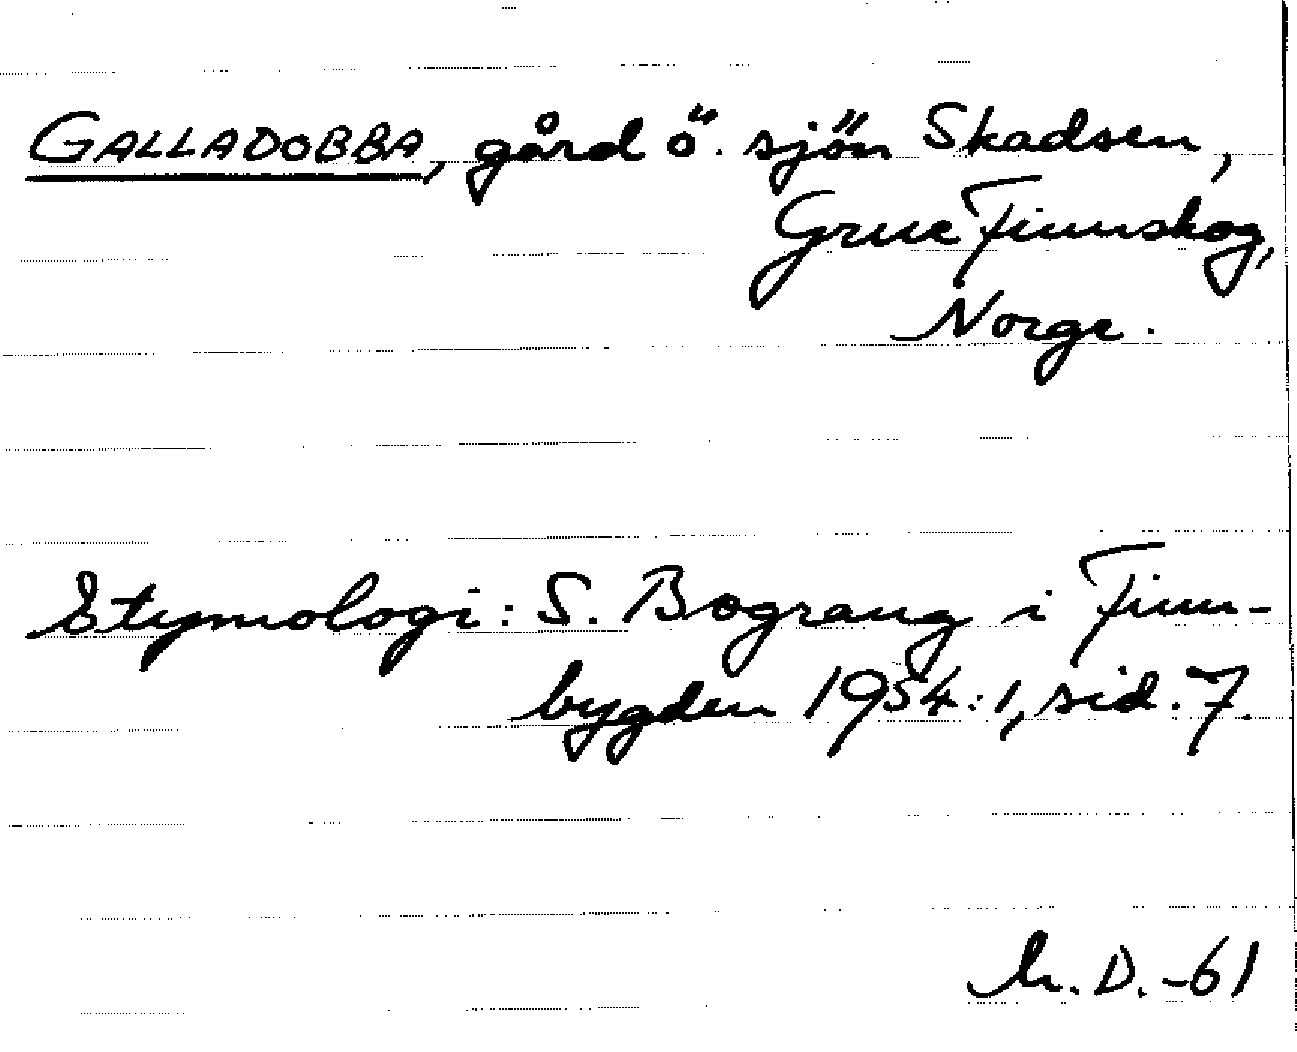 GALLADOBBA, gård ö. sjön Skadsen,
Grue Finnskog,
Norge.
Etymologi: S. Bograng i Finn-
bygden 1954:1, sid. 7.
h. D. -61